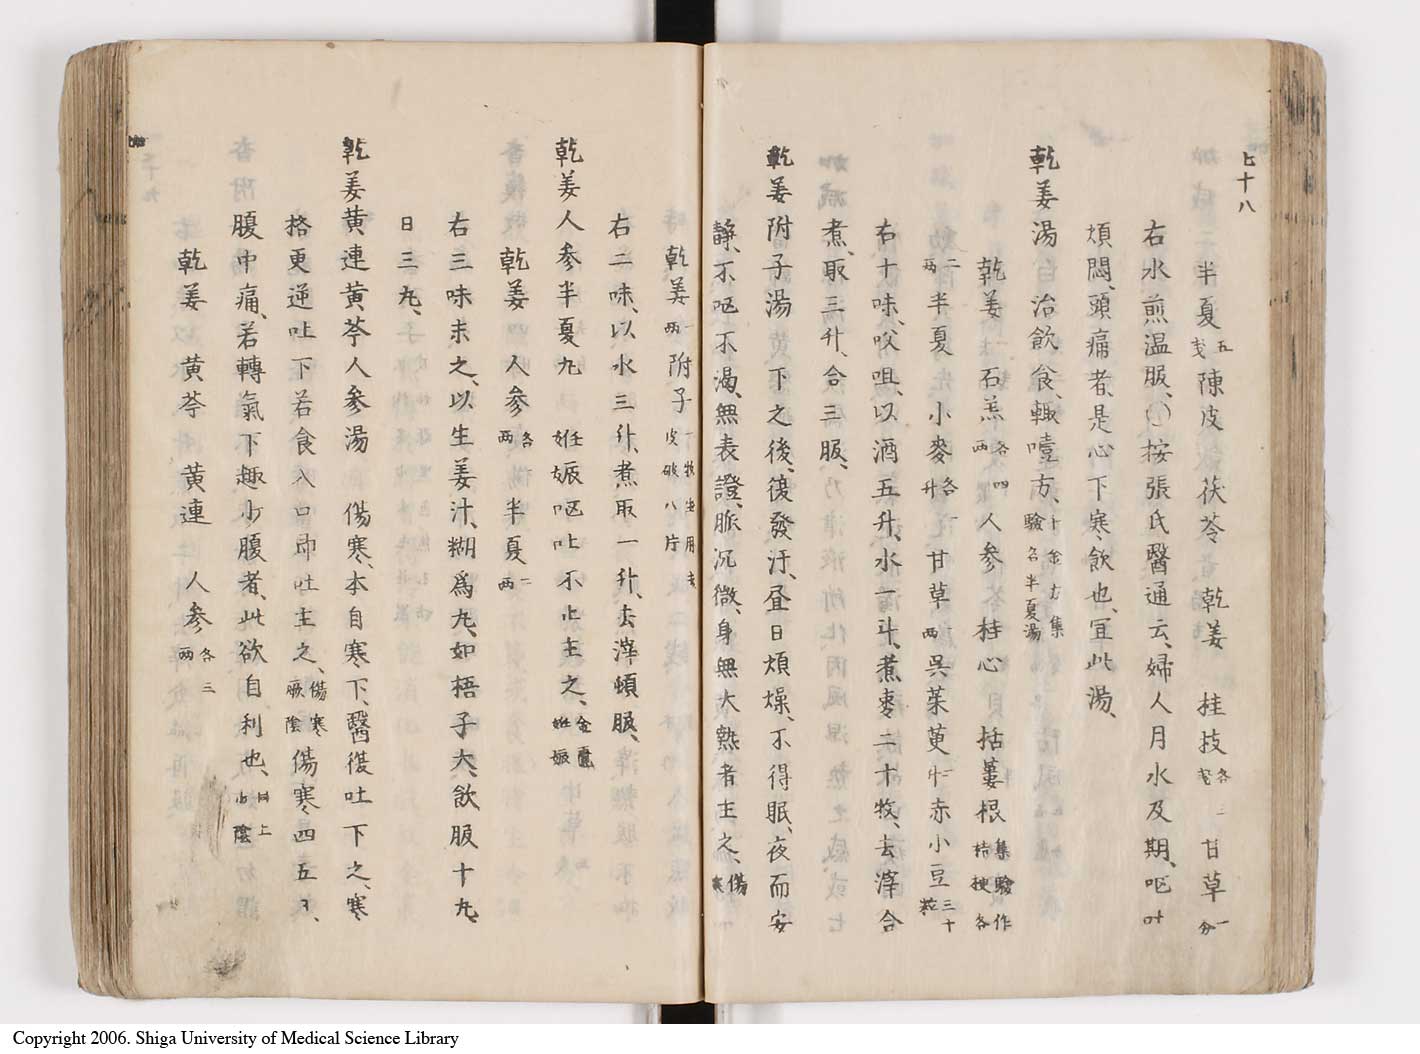 七十八
半夏五戔陳皮茯苓 乾姜 桂技各三戔甘草一分
右水煎温服、〇按張氏醫通云、婦人月水及期、嘔吐
煩悶、頭痛者、是心下寒飲也、冝此湯、
乾姜湯 治飲食、輙噎方、千金方集驗名半夏湯
乾姜 石羔各四両 人参 桂心 括蔞根集驗作桔梗各
二両半夏 小麥各一升 甘草一両呉茱萸二升赤小豆三十粒
右十味、㕮咀、以酒五升、水一斗、煮棗二十牧、去滓合
煮、取三升、合三服、
乾姜附子湯 下之後、復發汗、昼日煩燥、不得眠、夜而安
静、不嘔不渇、無表證、脈沉微、身無大熱者主之、傷寒
乾姜一両附子一牧生用去皮破八片
右二味、以水三升、煮取一升、去滓頓服、
乾姜人参半夏丸 妊娠嘔吐不止主之、金匱妊娠
乾姜 人参各一両 半夏二両
右三味末之、以生姜汁、糊爲丸、如梧子大、飲服十丸、
日三丸、
乾姜黄連黄芩人参湯 傷寒、本自寒下、醫復吐下之、寒
挌更逆吐下若食入口即吐主之、傷寒厥陰傷寒四五日、
腹中痛、若轉氣下趣少腹者、此欲自利也、同上少陰
乾姜 黄芩 黄連 人参各三両
Copyright 2006. Shiga University of Medical Science Library